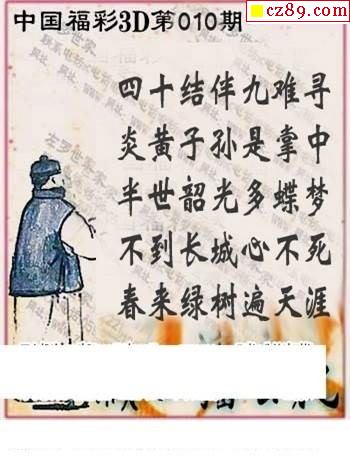 cz89.com
中国福彩3D第010期
四十结伴九难寻
炎黄子孙是掌中
半世韶光多蝶梦
不到长城心不死
春来绿树遍天涯